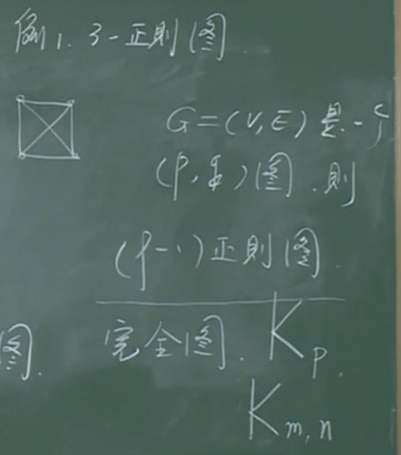 例1. 3-正则图
G=(V,E)是一个
(p,q)图.则
(p-1)正则图.
图.
完全图. Kp.
Km,n